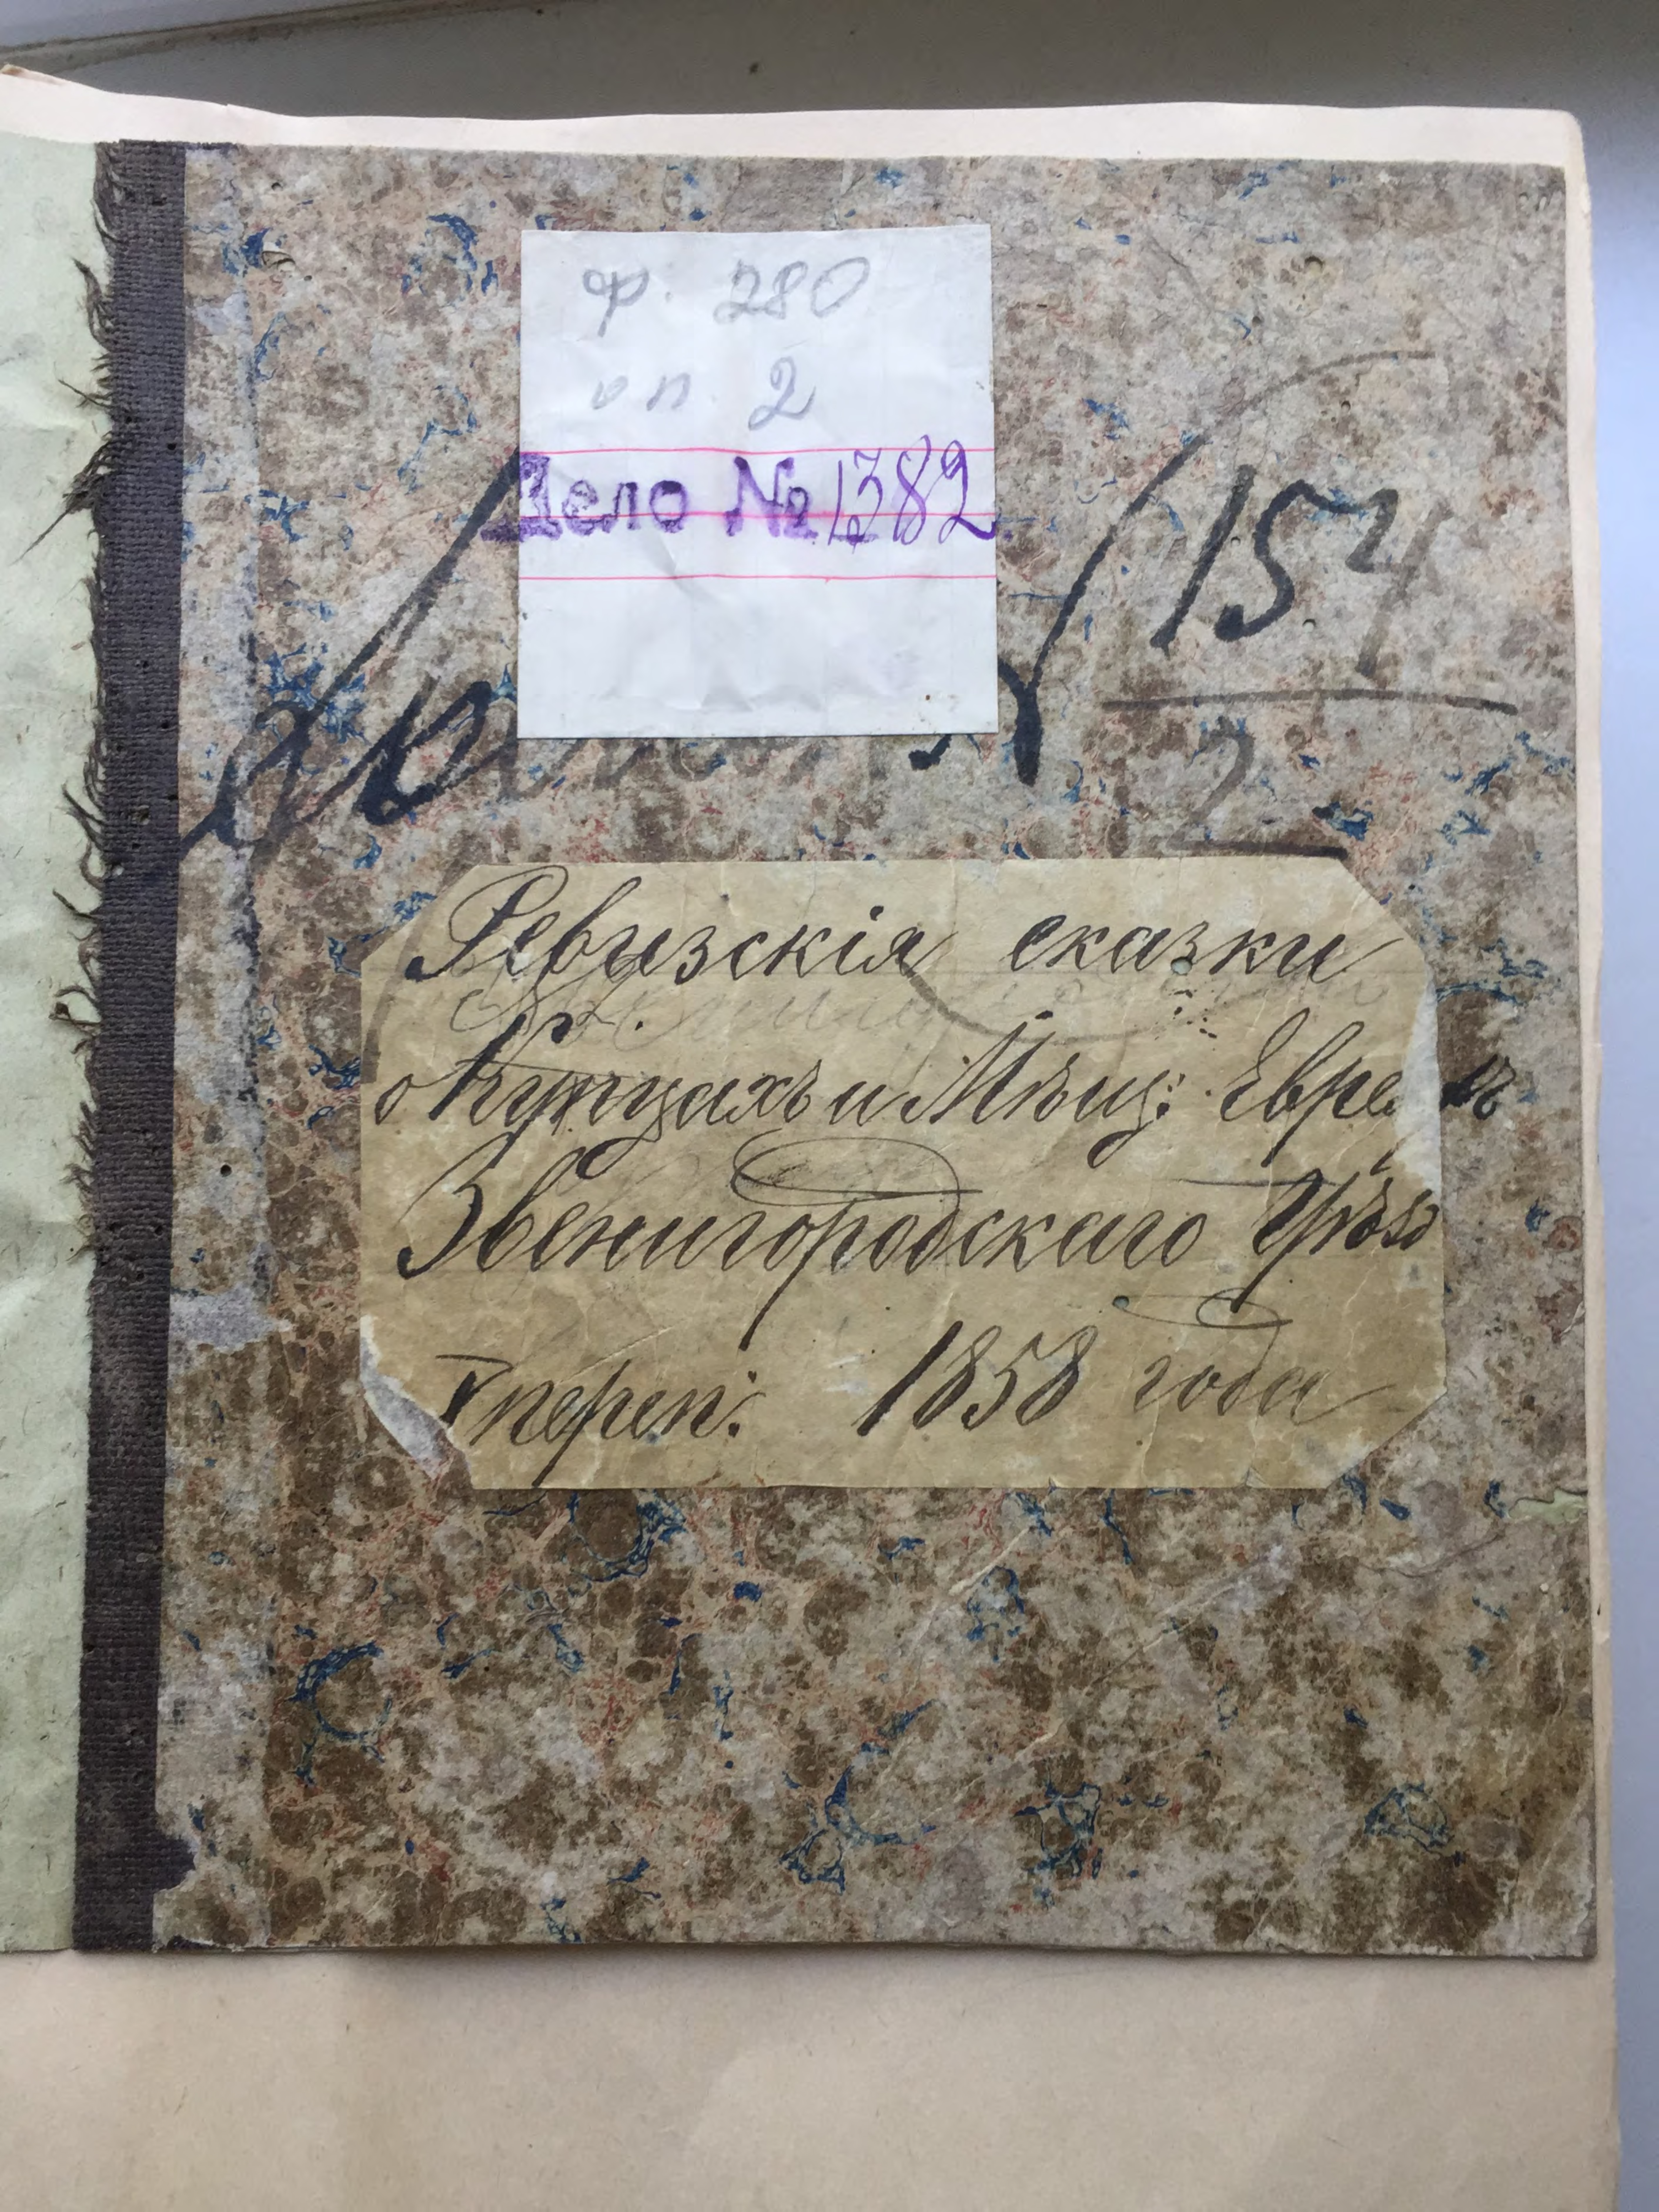 ф. 280
оп. 2
Дело № 1382
154
2
Ревизскія сказки
о Купцахъ и Мѣщ: Евре ъ
Звенигородскаго Уѣз
V переп: 1858 года